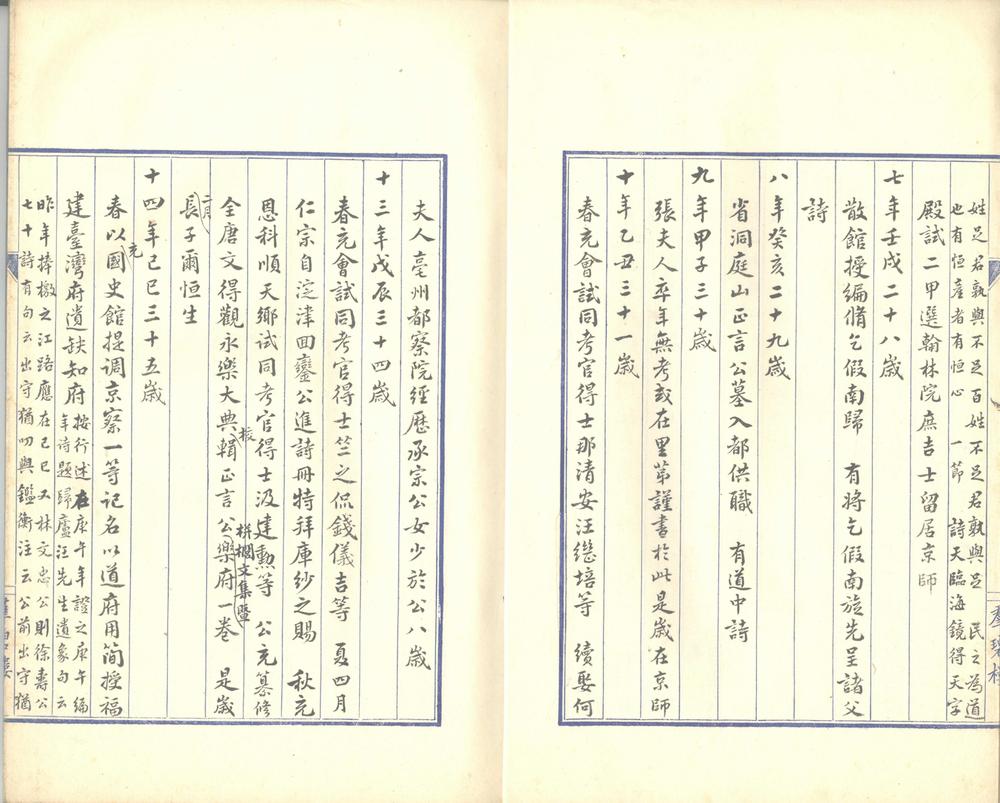 姓足君孰與不足百姓不足君孰與足　民之為道
也有恒產者有恒心　一節　詩天臨海鏡得天字
殿試二甲選翰林院庶吉士留居京師
七年壬戌二十八歲
散館授編脩乞假南歸　有將乞假南旋先呈諸父
詩
八年癸亥二十九歲
省洞庭山正言公墓入都供職　有道中詩
九年甲子三十歲
張夫人卒年無考或在里第謹書於此是歲在京師
十年乙丑三十一歲
春充會試同考官得士那清安汪繼培等　續娶何
羣碧樓
夫人臺州都察院經歷承宗公女少於公八歲
十三年戊辰三十四歲
春充會試同考官得士竺之侃錢儀吉等　夏四月
仁宗自淀津回鑾公進詩冊特拜庫紗之賜　秋充
恩科順天鄉試同考官得士汲建勲等　公充纂修
全唐文得觀永樂大典輯校正言公栟櫚文集暨樂府一卷　是歲
二月長子爾恒生
十四年己巳三十五歲
春以充國史館提調京察一等記名以道府用簡授福
建臺灣府遺缺知府
按行述在庚午年證之庚午編
年詩題歸廬汪先生遺象句云
昨年捧檄之江路應在己巳又林文忠公則徐壽公
七十詩有句云出守猶叨與鑑衡注云公前出守猶